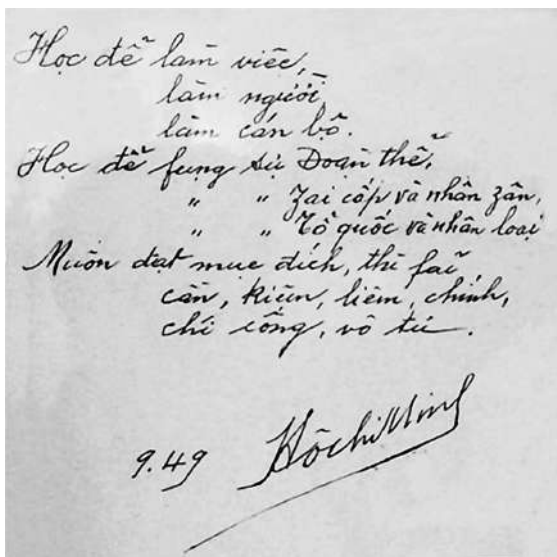 Học để làm việc,
làm người,
làm cán bộ.
Học để fụng sự Đoàn thể,
" " zai cấp và nhân zân,
" " Tổ quốc và nhân loại
Muốn đạt mục đích, thì fải
cần, kiệm, liêm, chính,
chí công, vô tư.
9.49 HồchiMinh